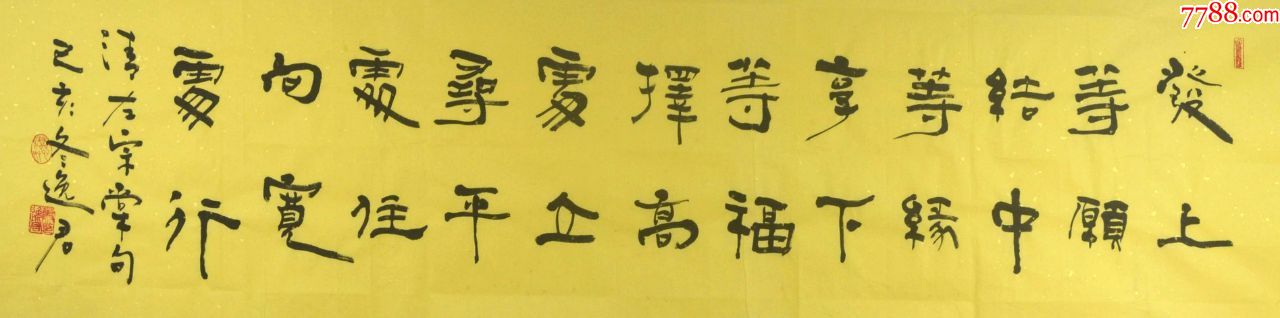 發上
等願
結中
等緣
享下
等福
擇高
處立
尋平
處住
向寬
處行
清左宗棠句
己亥冬逸君
7788.com